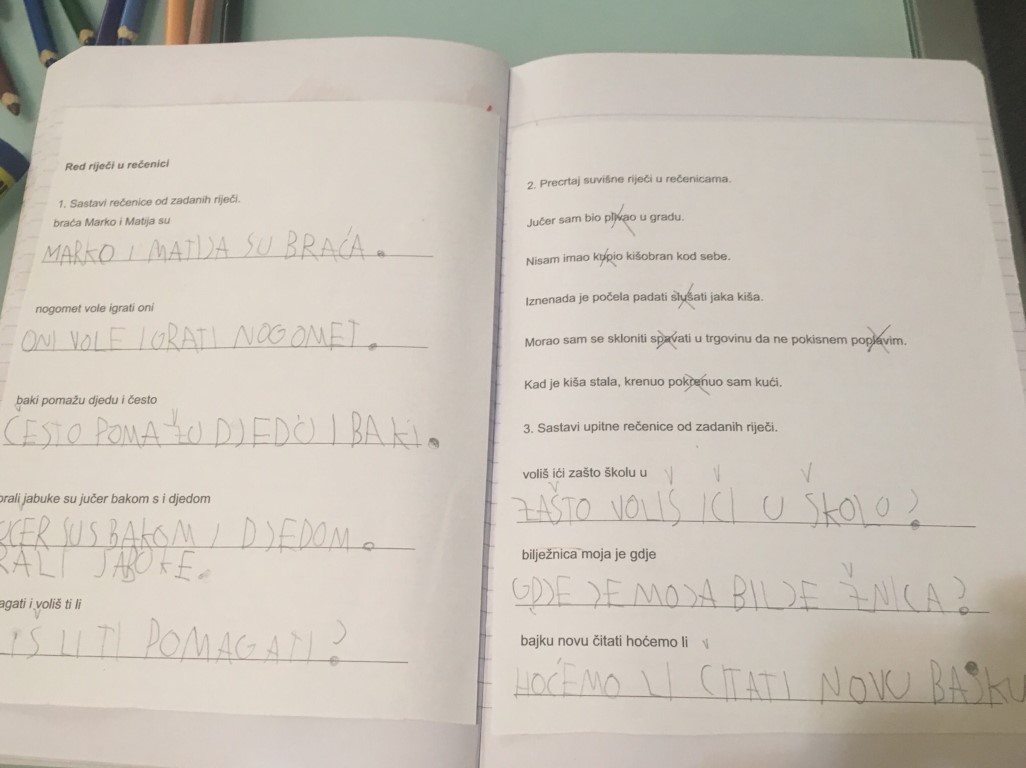 Red riječi u rečenici
1. Sastavi rečenice od zadanih riječi.
braća Marko i Matija su
MARKO I MATIJA SU BRAĆA.
nogomet vole igrati oni
ONI VOLE IGRATI NOGOMET.
baki pomažu djedu i često
ČESTO POMAŽU DJEDU I BAKI.
brali jabuke su jučer bakom s i djedom
SU S BAKOM I DJEDOM.
JABUKE.
i voliš ti li
LI TI POMAGATI?
2. Precrtaj suvišne riječi u rečenicama.
Jučer sam bio plivao u gradu.
Nisam imao kupio kišobran kod sebe.
Iznenada je počela padati slušati jaka kiša.
Morao sam se skloniti spavati u trgovinu da ne pokisnem poplavim.
Kad je kiša stala, krenuo pokrenuo sam kući.
3. Sastavi upitne rečenice od zadanih riječi.
voliš ići zašto školu u
ZAŠTO VOLIŠ IĆI U ŠKOLU?
bilježnica moja je gdje
GDJE JE MOJA BILJEŽNICA?
bajku novu čitati hoćemo li
HOĆEMO LI ČITATI NOVU BAJKU